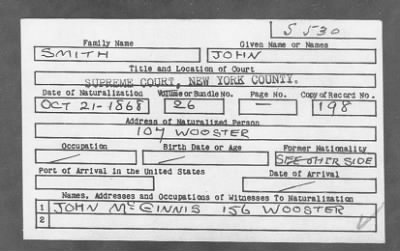 S 530
Family Name Given Name or Names
SMITH JOHN
Title and Location of Court
SUPREME COURT, NEW YORK COUNTY.
Date of Naturalization Volume or Bundle No. Page No. Copy of Record No.
OCT 21-1868 26 — 198
Address of Naturalized Person
107 WOOSTER
Occupation Birth Date or Age Former Nationality
SEE OTHER SIDE
Port of Arrival in the United States Date of Arrival
Names, Addresses and Occupations of Witnesses To Naturalization
1 JOHN McGINNIS 156 WOOSTER
2